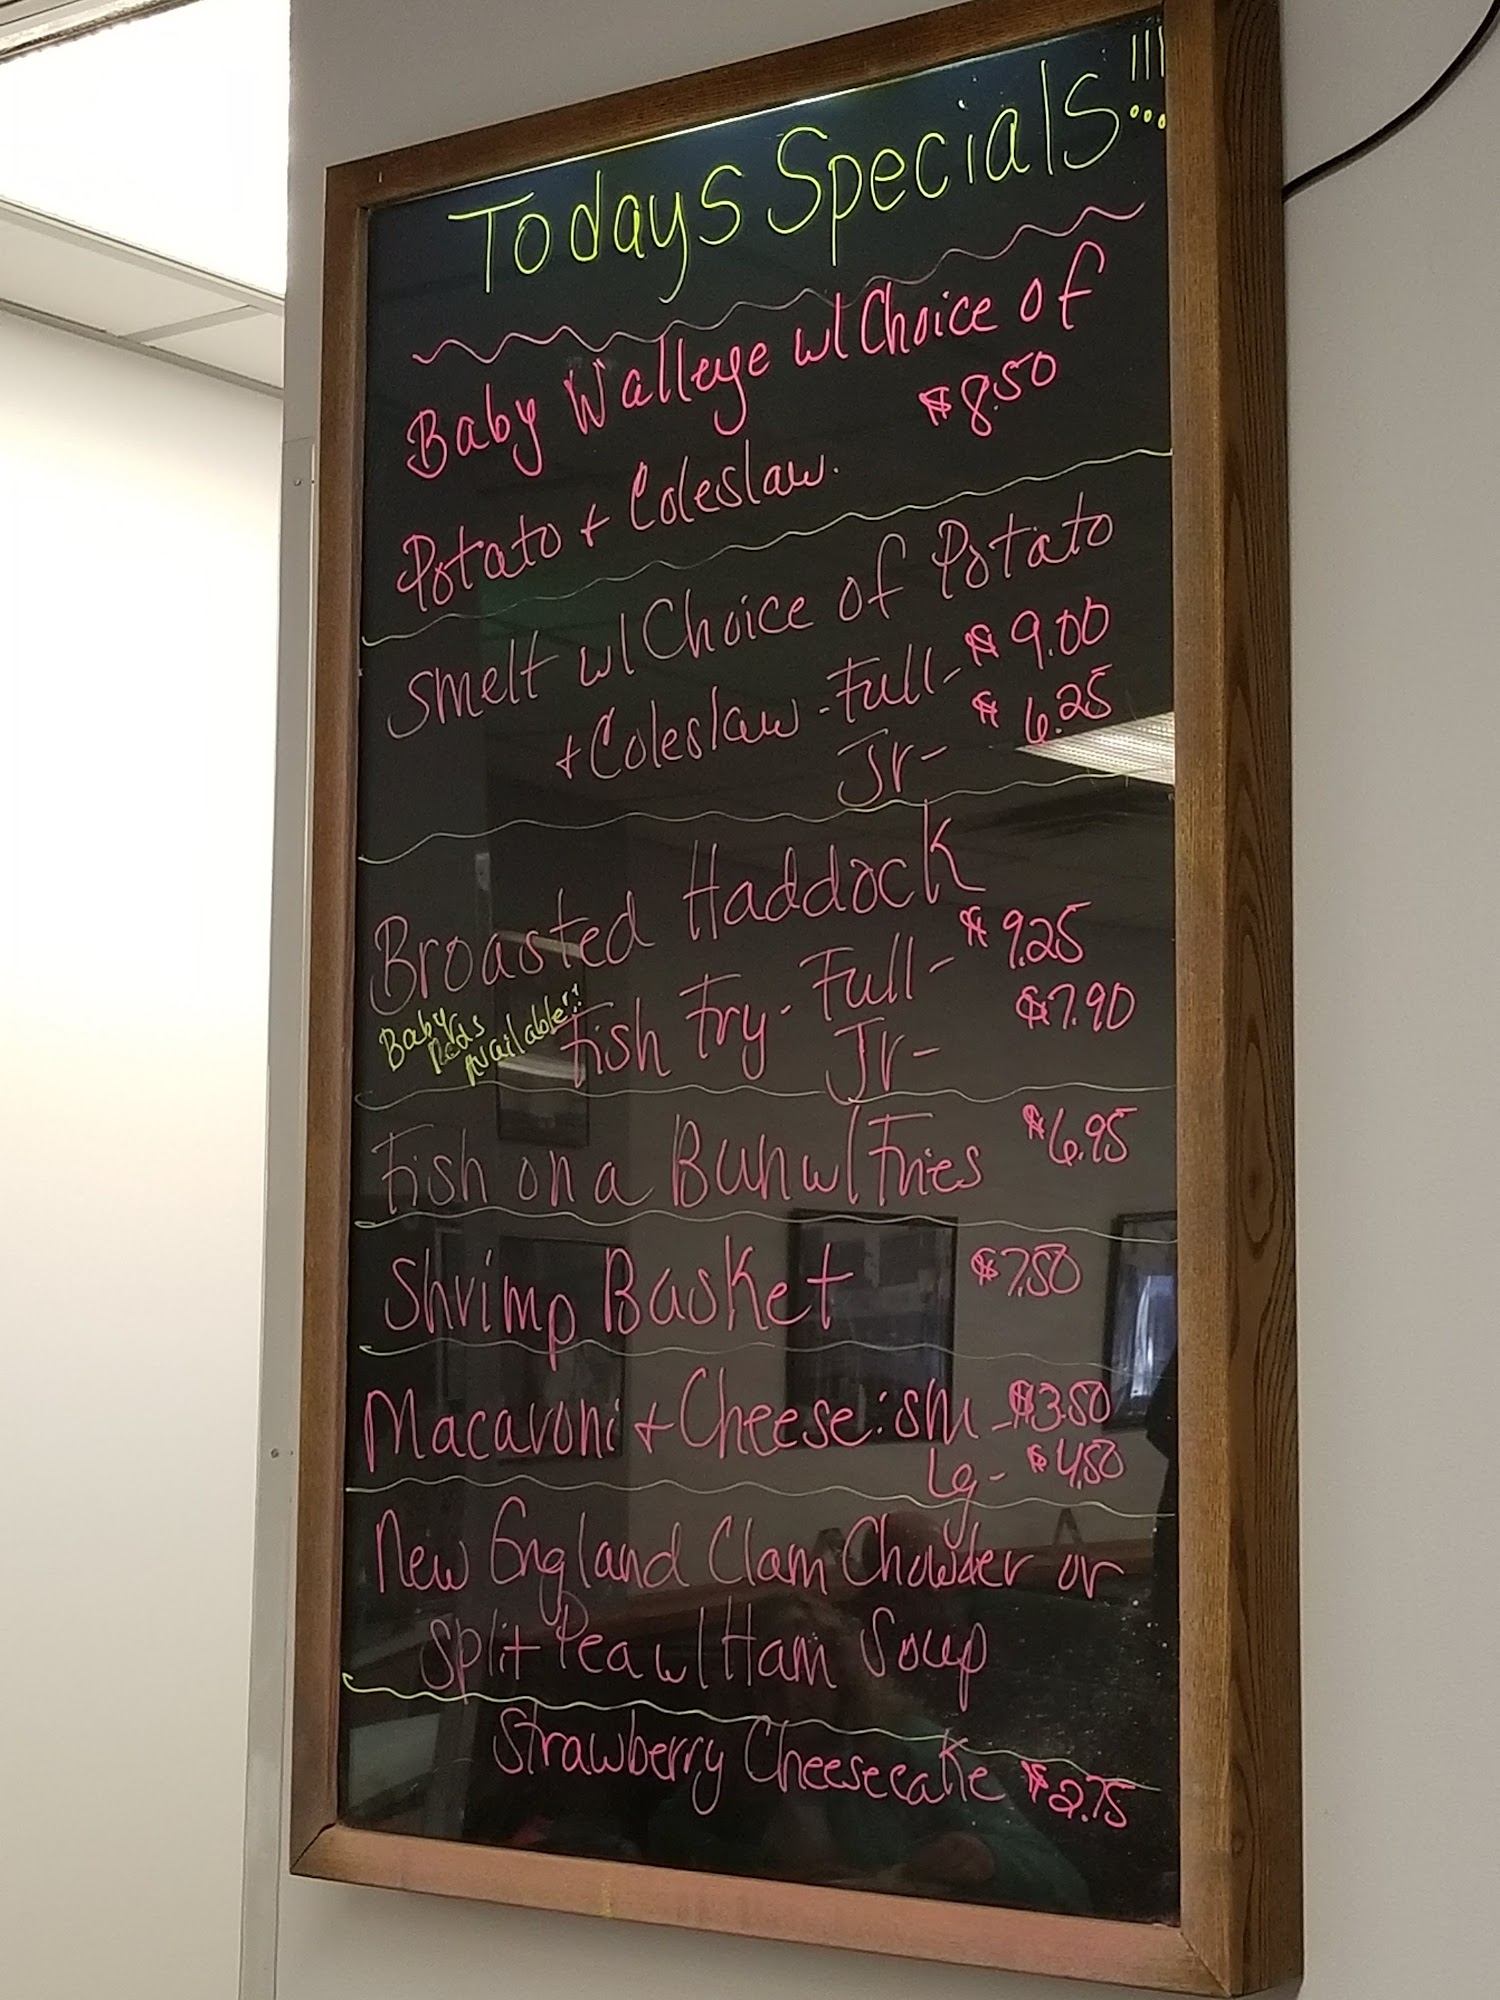 Todays Specials!!!
Baby Walleye w/ Choice of
Potato + Coleslaw. $8.50
Smelt w/ Choice of Potato
+ Coleslaw - Full - $9.00
Jr - $6.25
Broasted Haddock
Fish Fry - Full - $9.25
Jr - $7.90
Baby
Reds
Available!!
Fish on a Bun w/ Fries $6.95
Shrimp Basket $7.50
Macaroni + Cheese: sm - $3.50
Lg - $4.50
New England Clam Chowder or
Split Pea w/ Ham Soup
Strawberry Cheesecake $2.75